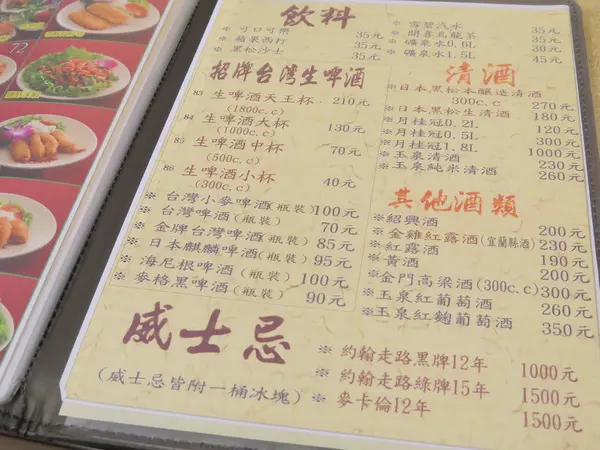 飲料
※可口可樂 35元
※蘋果西打 35元
※黑松沙士 35元
※雪碧汽水 35元
※開喜烏龍茶 35元
※礦泉水0.6L 30元
※礦泉水1.5L 45元
招牌台灣生啤酒
83 生啤酒天王杯 210元
(1800c.c)
84 生啤酒大杯 130元
(1000c.c)
85 生啤酒中杯 70元
(500c.c)
86 生啤酒小杯 40元
(300c.c)
※台灣小麥啤酒(瓶裝) 100元
※台灣啤酒(瓶裝) 70元
※金牌台灣啤酒(瓶裝) 85元
※日本麒麟啤酒(瓶裝) 95元
※海尼根啤酒(瓶裝) 100元
※麥格黑啤酒(瓶裝) 90元
清酒
※日本黑松本釀造清酒
300c.c 270元
※日本黑松生清酒 180元
※月桂冠0.2L 120元
※月桂冠0.5L 300元
※月桂冠1.8L 1000元
※玉泉清酒 230元
※玉泉純米清酒 260元
其他酒類
※紹興酒 200元
※金雞紅露酒(宜蘭縣酒) 230元
※紅露酒 190元
※黃酒 200元
※金門高梁酒(300c.c) 300元
※玉泉紅葡萄酒 260元
※玉泉紅麴葡萄酒 350元
威士忌
(威士忌皆附一桶冰塊)
※約翰走路黑牌12年 1000元
※約翰走路綠牌15年 1500元
※麥卡倫12年 1500元
72